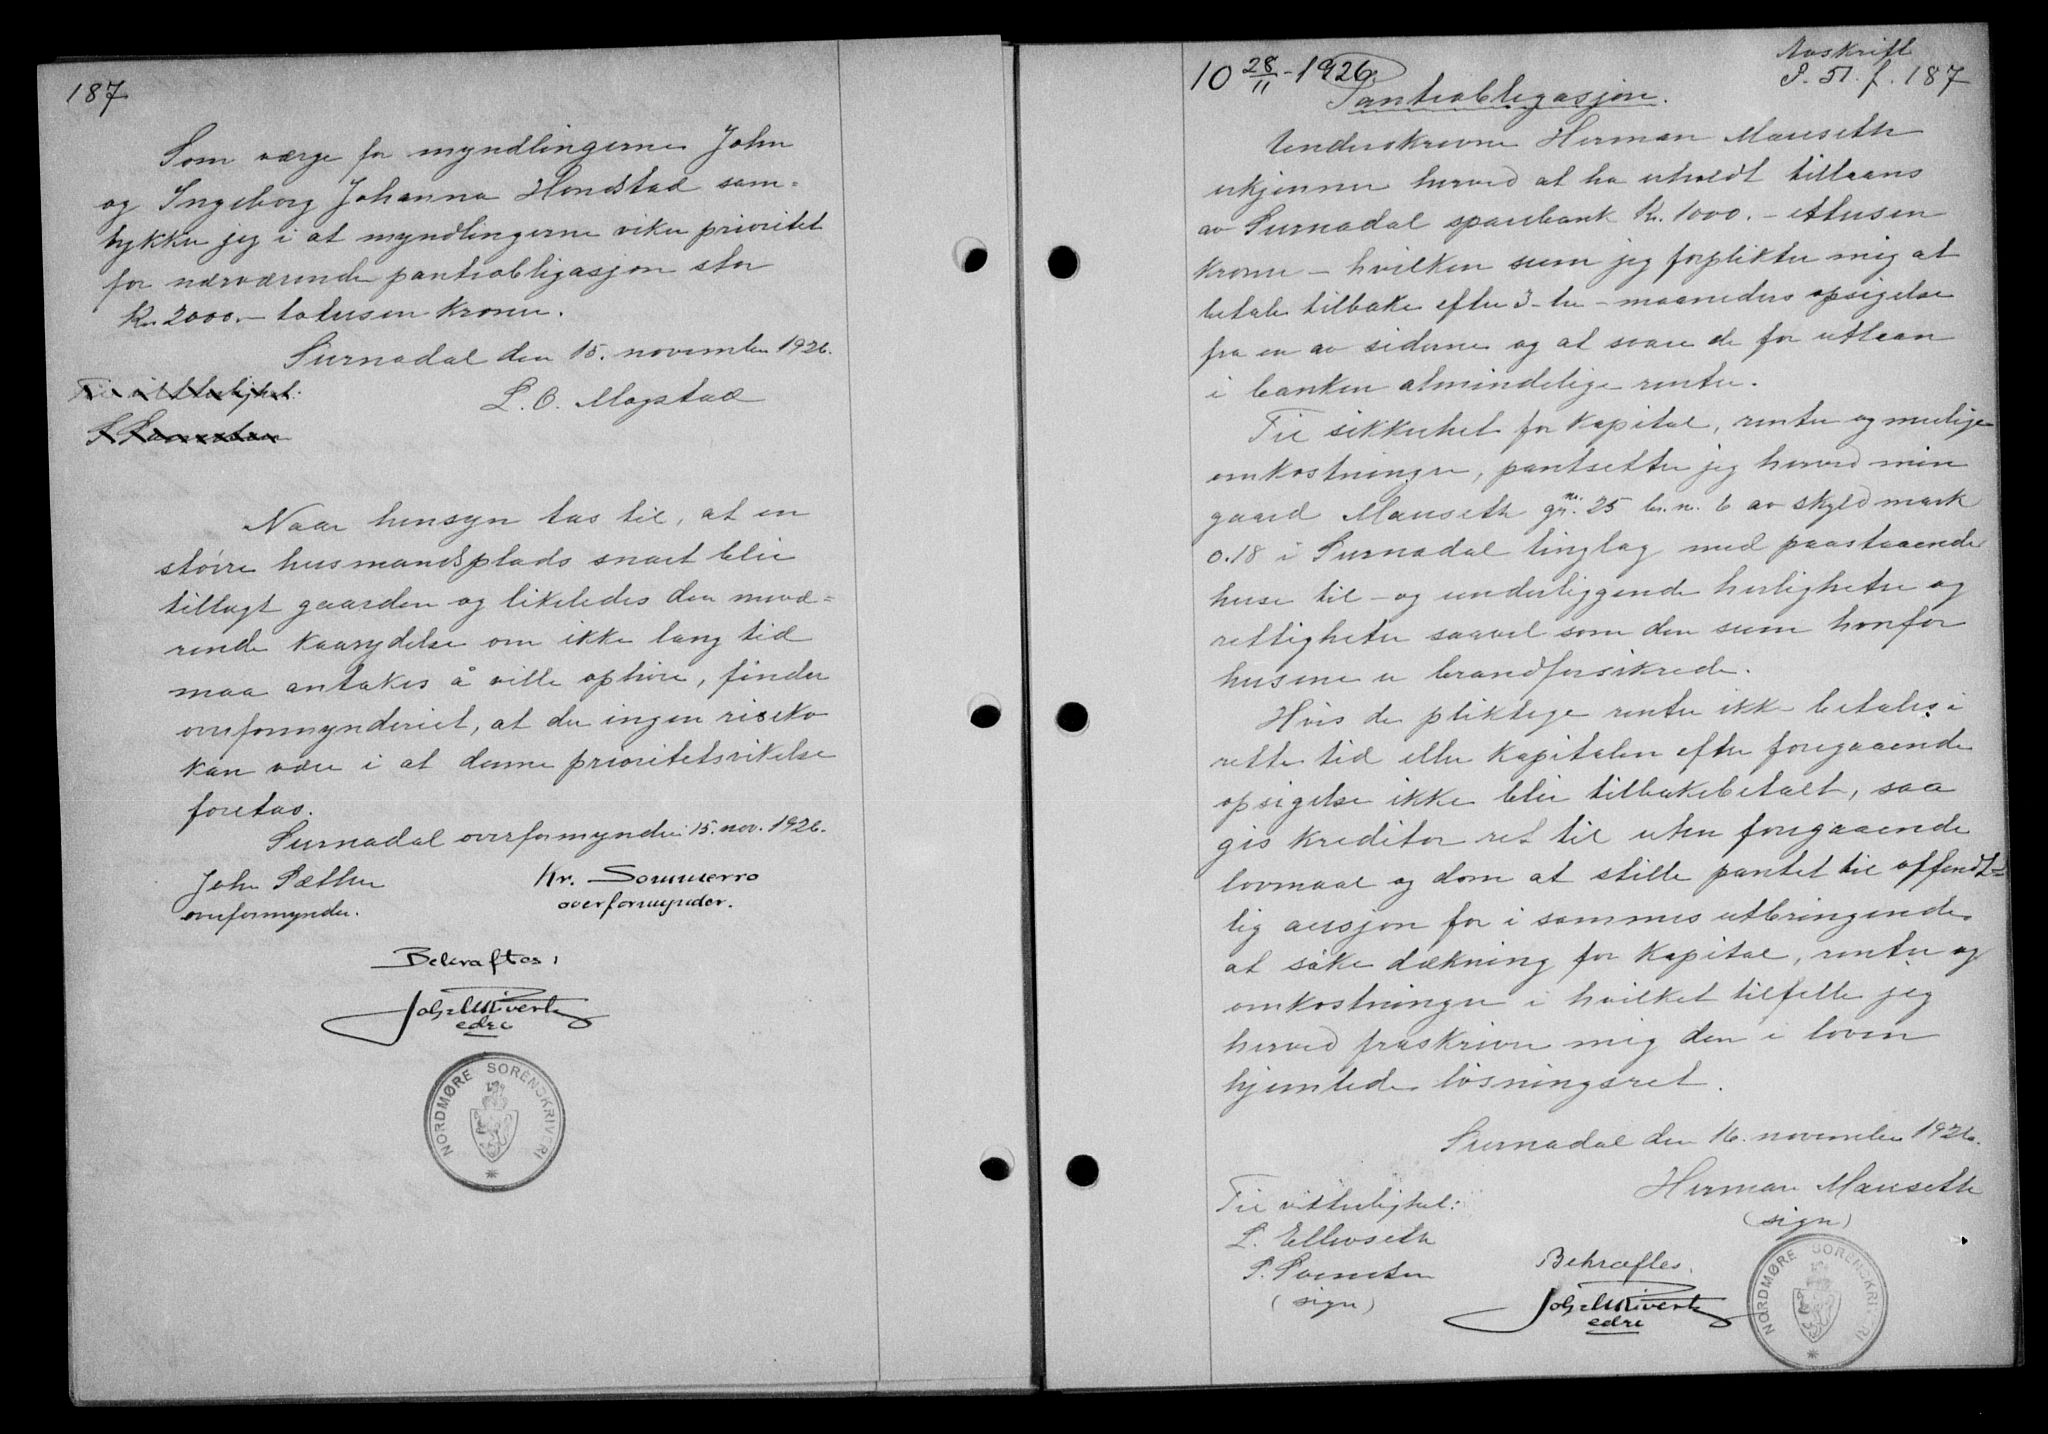 187
Som værge for myndlingerne John
og Ingeborg Johanna Hondstad sam-
tykker jeg i at myndlingerne viker prioritet
for nærværende pantobligasjon stor
Kr. 2000.- totusen kroner.
Surnadal den 15. november 1926.
Til vitterlighet:
L. O. Mogstad
Naar hensyn tas til, at en
større husmandsplads snart blir
tillagt gaarden og likeledes den nuvæ-
rende kaarydelse om ikke lang tid
maa antakes å ville ophøre, finder
overformynderiet, at der ingen risiko
kan være i at denne prioritetsvikelse
foretas.
Surnadal overformynderi 15. nov. 1926.
John Sæther
overformynder.
Kr. Sommerro
overformynder.
Bekræftes,
edre
NORDMØRE SORENSKRIVERI
Avskrift
P. 51. f. 187
10 28/11-1926.
Pantobligasjon.
Underskrevne Herman Mauseth
erkjenner herved at ha erholdt tillaans
av Surnadal sparebank kr. 1000.- ettusen
kroner - hvilken sum jeg forplikter mig at
betale tilbake efter 3-tre-maaneders opsigelse
fra en av siderne og at svare de for utlaan
i banken almindelige renter.
Til sikkerhet for kapital, renter og mulige
omkostninger, pantsetter jeg herved min
gaard Mauseth gr.nr. 25 br.n. 6 av skyld mark
0.18 i Surnadal tinglag med paastaaende
huse til- og underliggende herligheter og
rettigheter saavel som den sum hvorfor
husene er brandforsikrede.
Hvis de pliktige renter ikke betales i
rette tid eller kapitalen efter foregaaende
opsigelse ikke blir tilbakebetalt, saa
gis kreditor ret til uten foregaaende
lovmaal og dom at stille pantet til offendt-
lig auksjon for i sammes utbringende
at søke dækning for kapital, renter og
omkostninger i hvilket tilfelle jeg
herved fraskriver mig den i loven
hjemlede løsningsret.
Surnadal den 16. november 1926.
Herman Mauseth
(sign)
Til vitterlighet:
L. Ellevseth
S. Svendsen
(sign)
Bekræftes.
edre
NORDMØRE SORENSKRIVERI